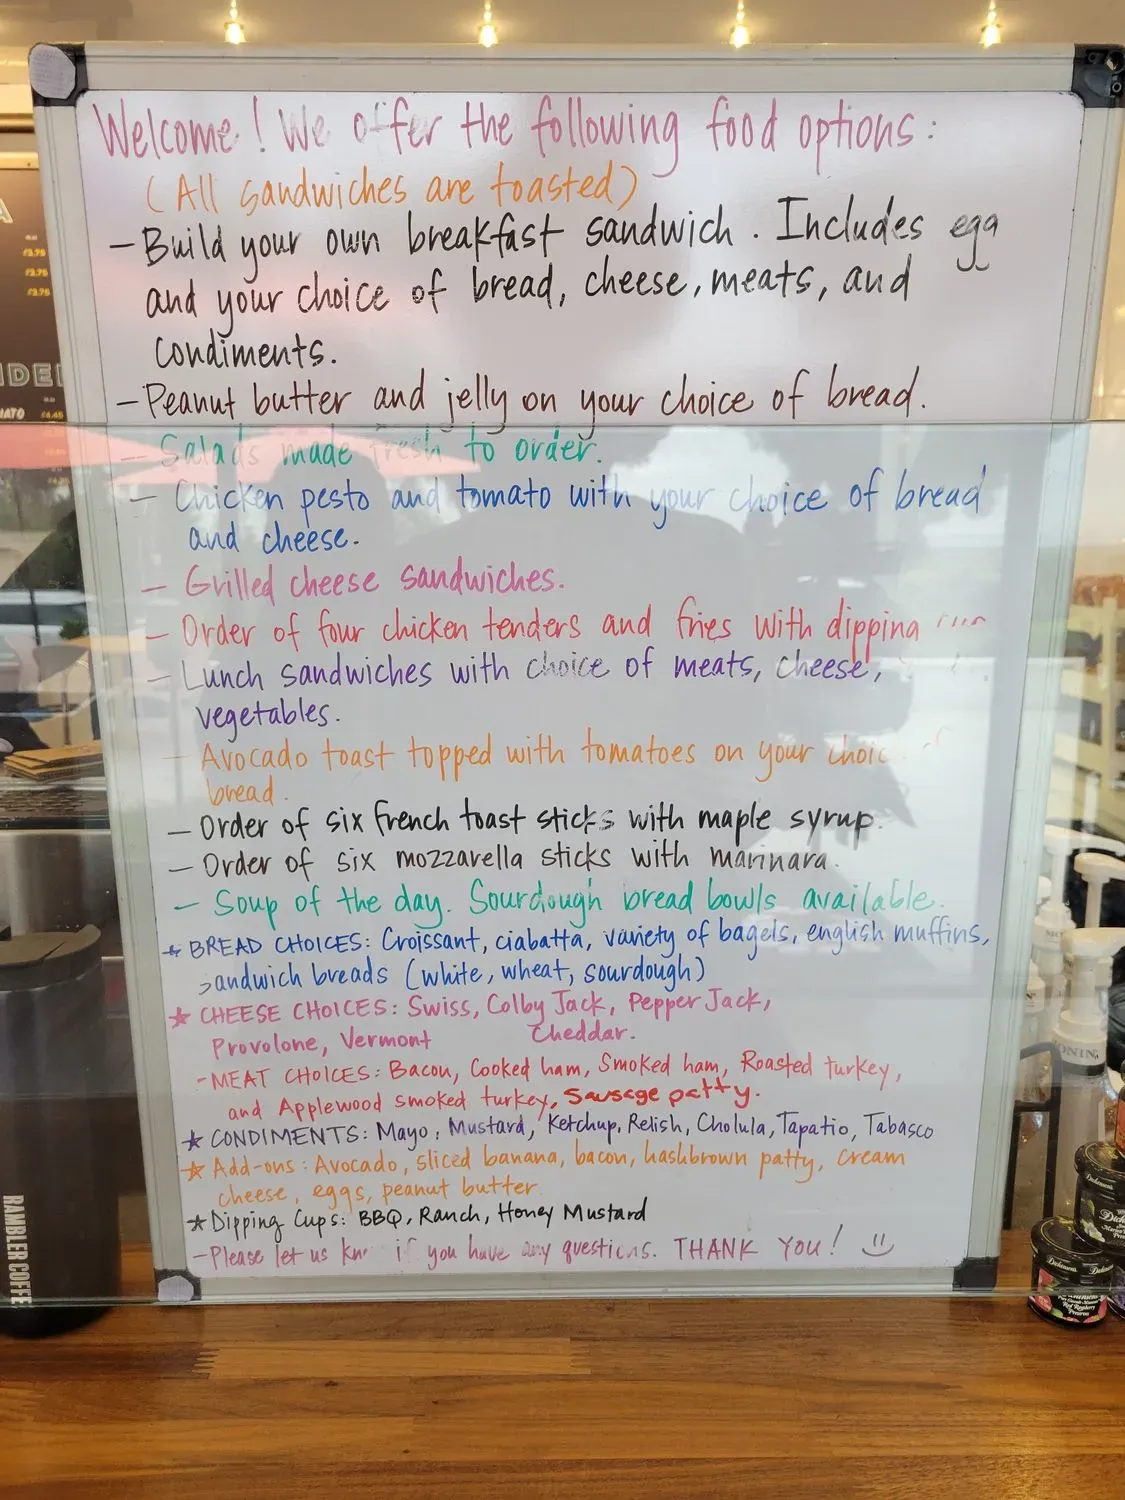 Welcome! We offer the following food options:
(All sandwiches are toasted)
- Build your own breakfast sandwich. Includes egg
and your choice of bread, cheese, meats, and
condiments.
- Peanut butter and jelly on your choice of bread.
- Salads made fresh to order.
- Chicken pesto and tomato with your choice of bread
and cheese.
- Grilled cheese sandwiches.
- Order of four chicken tenders and fries with dipping
- Lunch sandwiches with choice of meats, cheese,
vegetables.
- Avocado toast topped with tomatoes on your choic
bread.
- Order of six french toast sticks with maple syrup.
- Order of six mozzarella sticks with marinara.
- Soup of the day. Sourdough bread bowls available.
★ BREAD CHOICES: Croissant, ciabatta, variety of bagels, english muffins,
sandwich breads (white, wheat, sourdough)
★ CHEESE CHOICES: Swiss, Colby Jack, Pepper Jack,
Provolone, Vermont Cheddar.
- MEAT CHOICES: Bacon, Cooked ham, Smoked ham, Roasted turkey,
and Applewood smoked turkey, Sausage patty.
★ CONDIMENTS: Mayo, Mustard, Ketchup, Relish, Cholula, Tapatio, Tabasco
★ Add-ons: Avocado, sliced banana, bacon, hashbrown patty, cream
cheese, eggs, peanut butter
★ Dipping Cups: BBQ, Ranch, Honey Mustard
- Please let us kn if you have any questions. THANK YOU!
RAMBLER COFFE